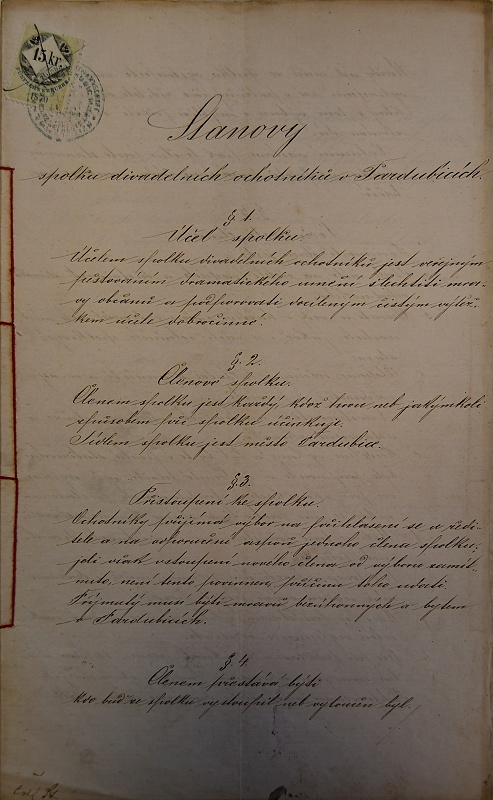 15 kr.
Stanovy
spolku divadelních ochotníků v Pardubicích.
§ 1.
Účel spolku.
Účelem spolku divadelních ochotníků jest veřejným
pěstováním dramatického umění šlechtiti mra-
vy občanů a podporovati docíleným čistým výtěž-
kem účele dobročinné.
§. 2.
Členové spolku.
Členem spolku jest každý, kdož hrou neb jakýmkoli
způsobem při spolku účinkuje.
Sídlem spolku jest město Pardubice.
§. 3.
Přistoupení ke spolku.
Ochotníky přijímá výbor na přihlášení se u ředi-
tele a na odporučení aspoň jednoho člena spolku;
jeli však vstoupení nového člena od výboru zamít-
nuto, není tento povinnen, příčinu toho udati.
Přijmutý musí býti mravů bezúhonných a bytem
v Pardubicích.
§. 4.
Členem přestává býti
kdo buď ze spolku vystoupil neb vyloučen byl.